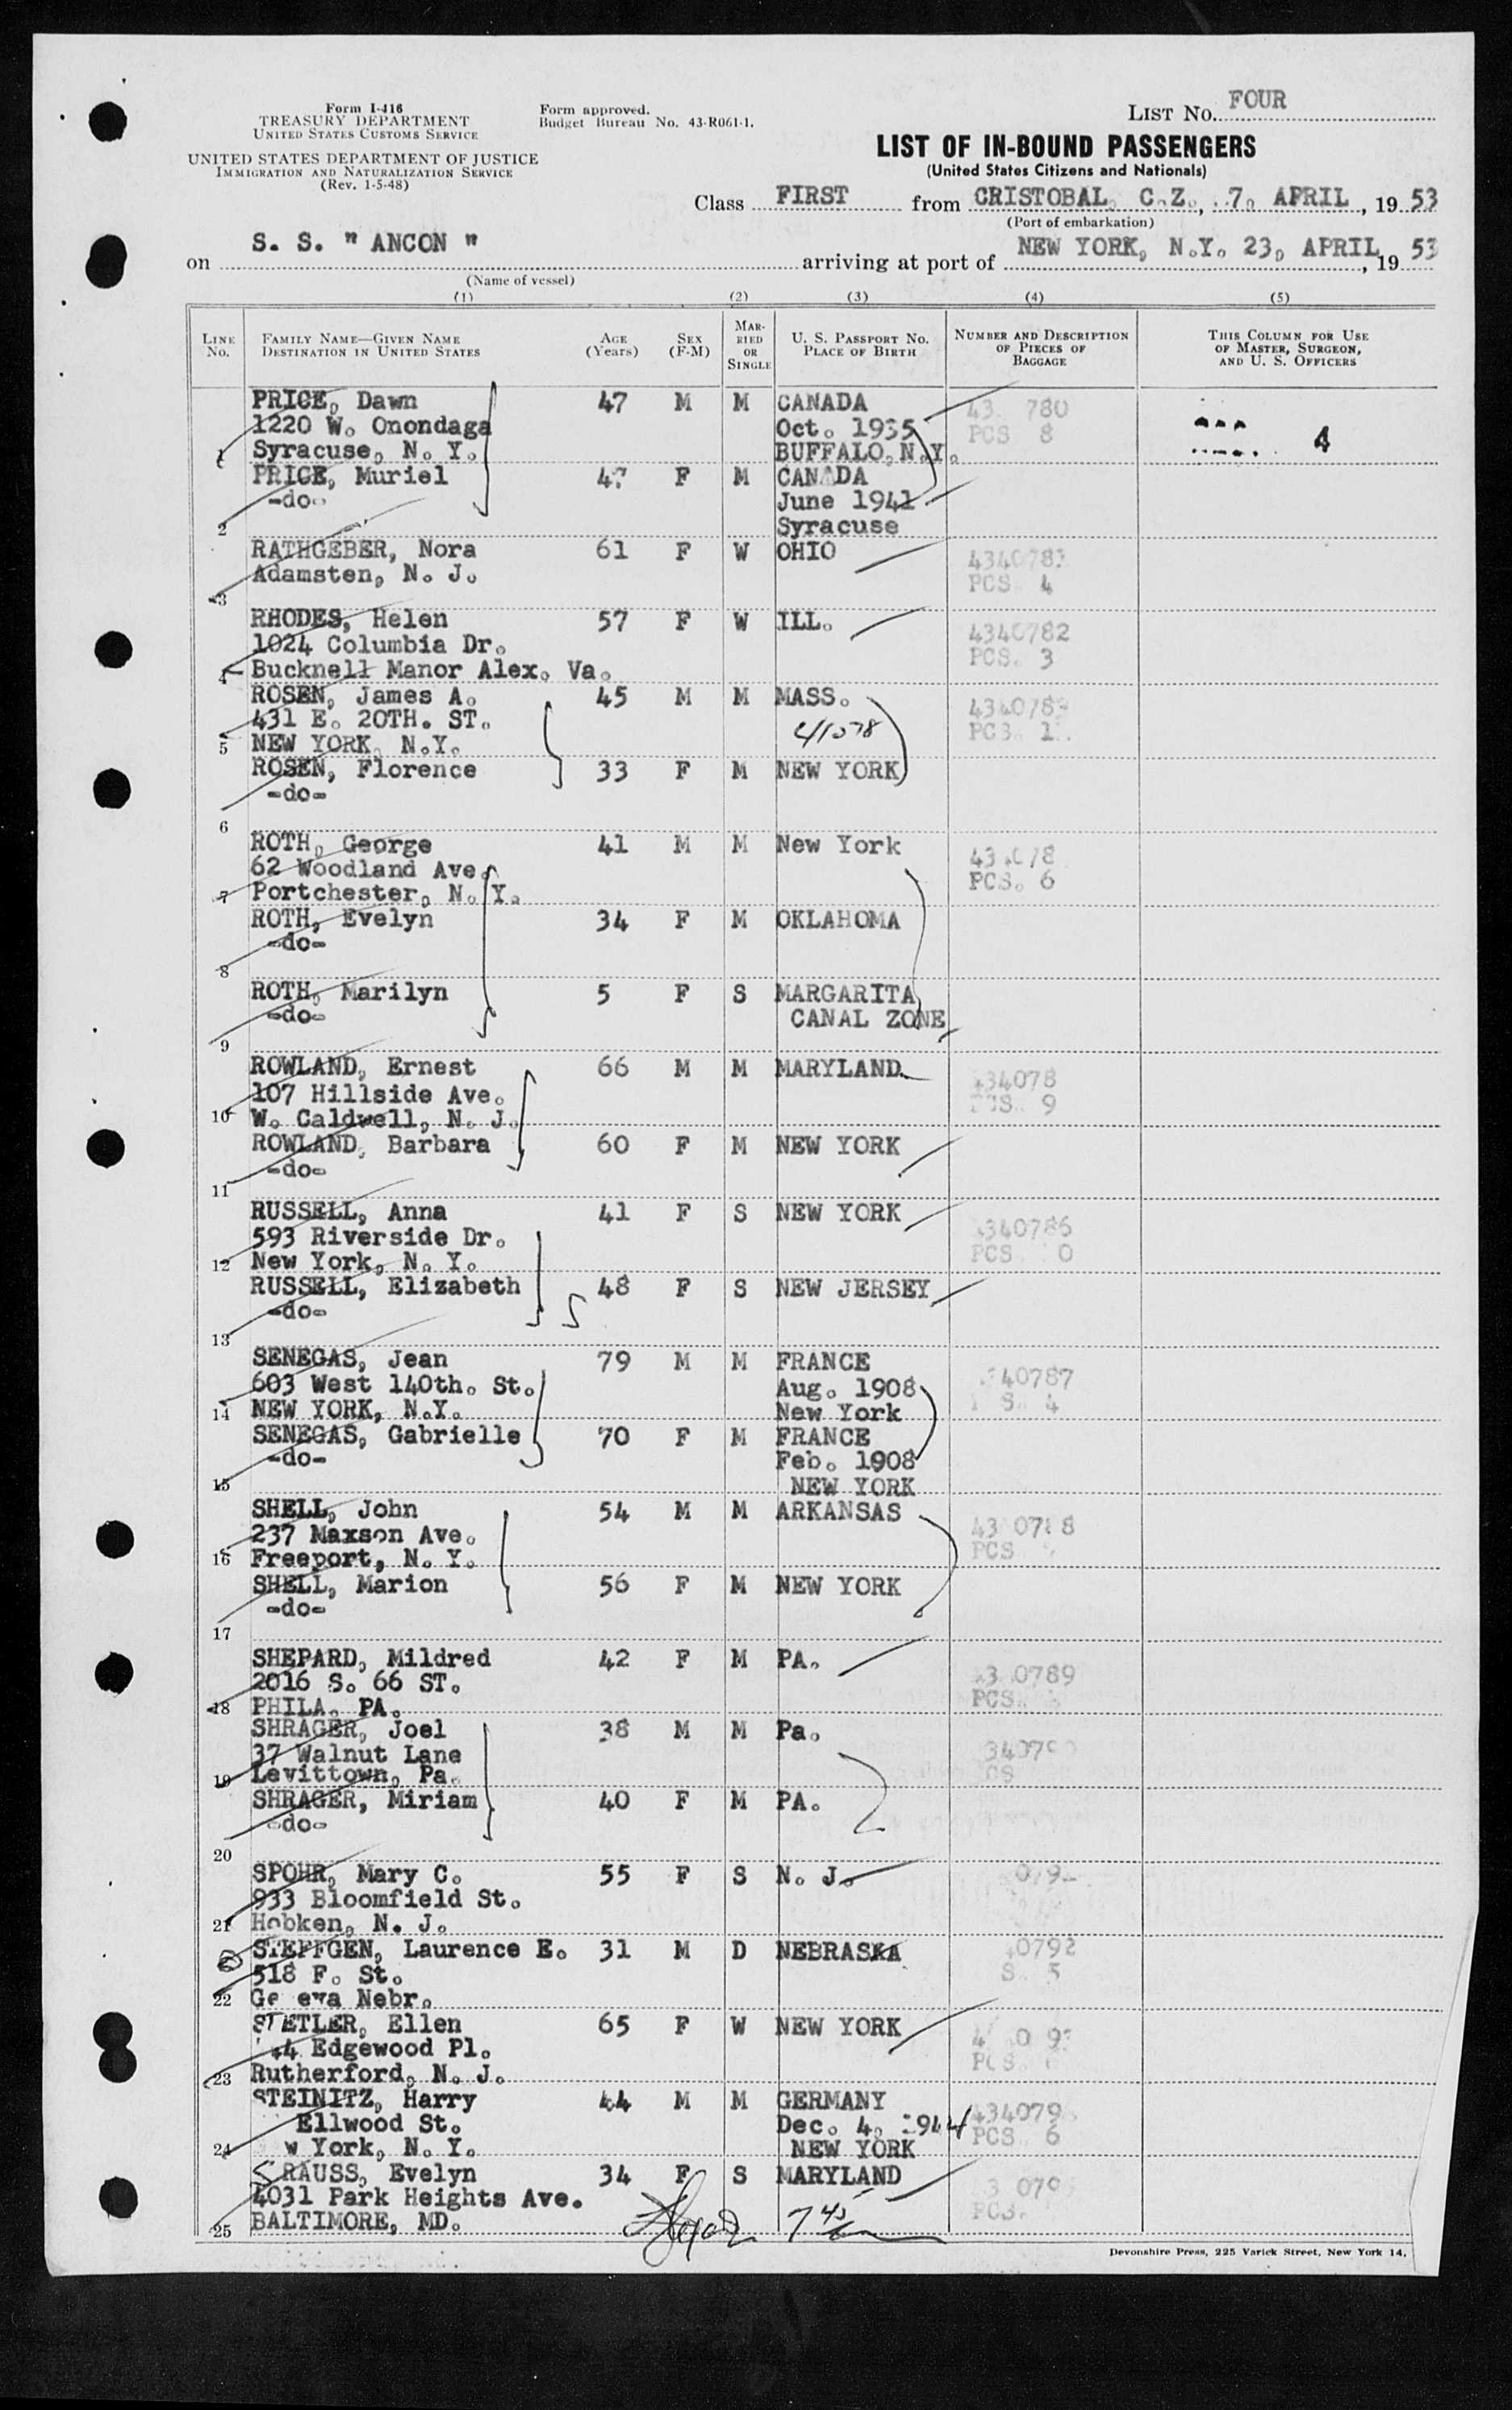 Form I-416
TREASURY DEPARTMENT
UNITED STATES CUSTOMS SERVICE
UNITED STATES DEPARTMENT OF JUSTICE
IMMIGRATION AND NATURALIZATION SERVICE
(Rev. 1-5-48)
Form approved.
Budget Bureau No. 43-R061-1.
LIST No. FOUR
LIST OF IN-BOUND PASSENGERS
(United States Citizens and Nationals)
Class FIRST from CRISTOBAL, C.Z., 7, APRIL, 19 53
(Port of embarkation)
on S. S. " ANCON " arriving at port of NEW YORK, N.Y. 23, APRIL, 19 53
(Name of vessel)
(1) (2) (3) (4) (5)
LINE No. FAMILY NAME—GIVEN NAME DESTINATION IN UNITED STATES AGE (Years) SEX (F-M) MARRIED OR SINGLE U. S. PASSPORT No. PLACE OF BIRTH NUMBER AND DESCRIPTION OF PIECES OF BAGGAGE THIS COLUMN FOR USE OF MASTER, SURGEON, AND U. S. OFFICERS
PRICE, Dawn 47 M M CANADA 43 780
1220 W. Onondaga Oct. 1935 PCS 8 4
1 Syracuse, N. Y. BUFFALO, N.Y.
PRICE, Muriel 47 F M CANADA
-do- June 1941
2 Syracuse
RATHGEBER, Nora 61 F W OHIO
Adamsten, N. J. PCS 4
3
RHODES, Helen 57 F W ILL. 4340782
1024 Columbia Dr. PCS. 3
4 Bucknell Manor Alex. Va.
ROSEN, James A. 45 M M MASS.
431 E. 20TH. ST.
5 NEW YORK, N.Y.
ROSEN, Florence 33 F M NEW YORK
-do-
6
ROTH, George 41 M M New York
62 Woodland Ave. PCS. 6
7 Portchester, N. Y.
ROTH, Evelyn 34 F M OKLAHOMA
-do-
8
ROTH, Marilyn 5 F S MARGARITA
-do- CANAL ZONE
9
ROWLAND, Ernest 66 M M MARYLAND 434078
107 Hillside Ave. 9
10 W. Caldwell, N. J.
ROWLAND, Barbara 60 F M NEW YORK
-do-
11
RUSSELL, Anna 41 F S NEW YORK 4340786
593 Riverside Dr. PCS 0
12 New York, N. Y.
RUSSELL, Elizabeth 48 F S NEW JERSEY
-do-
13
SENEGAS, Jean 79 M M FRANCE 40787
603 West 140th. St. Aug. 1908 S. 4
14 NEW YORK, N.Y. New York
SENEGAS, Gabrielle 70 F M FRANCE
-do- Feb. 1908
15 NEW YORK
SHELL, John 54 M M ARKANSAS
237 Maxson Ave. PCS
16 Freeport, N. Y.
SHELL, Marion 56 F M NEW YORK
-do-
17
SHEPARD, Mildred 42 F M PA. 0789
2016 S. 66 ST. PCS.
18 PHILA. PA.
SHRAGER, Joel 38 M M Pa.
37 Walnut Lane
19 Levittown, Pa.
SHRAGER, Miriam 40 F M PA.
-do-
20
SPOHR, Mary C. 55 F S N. J.
933 Bloomfield St.
21 Hobken, N. J.
STEFFGEN, Laurence E. 31 M D NEBRASKA 0792
518 F. St. S. 5
22 Ge eva Nebr.
STETLER, Ellen 65 F W NEW YORK
44 Edgewood Pl.
23 Rutherford, N. J.
STEINITZ, Harry 44 M M GERMANY 434079
Ellwood St. Dec. 4, 1944 PCS 6
24 w York, N. Y. NEW YORK
STRAUSS, Evelyn 34 F S MARYLAND
4031 Park Heights Ave. PCS.
25 BALTIMORE, MD.
Devonshire Press, 225 Varick Street, New York 14,